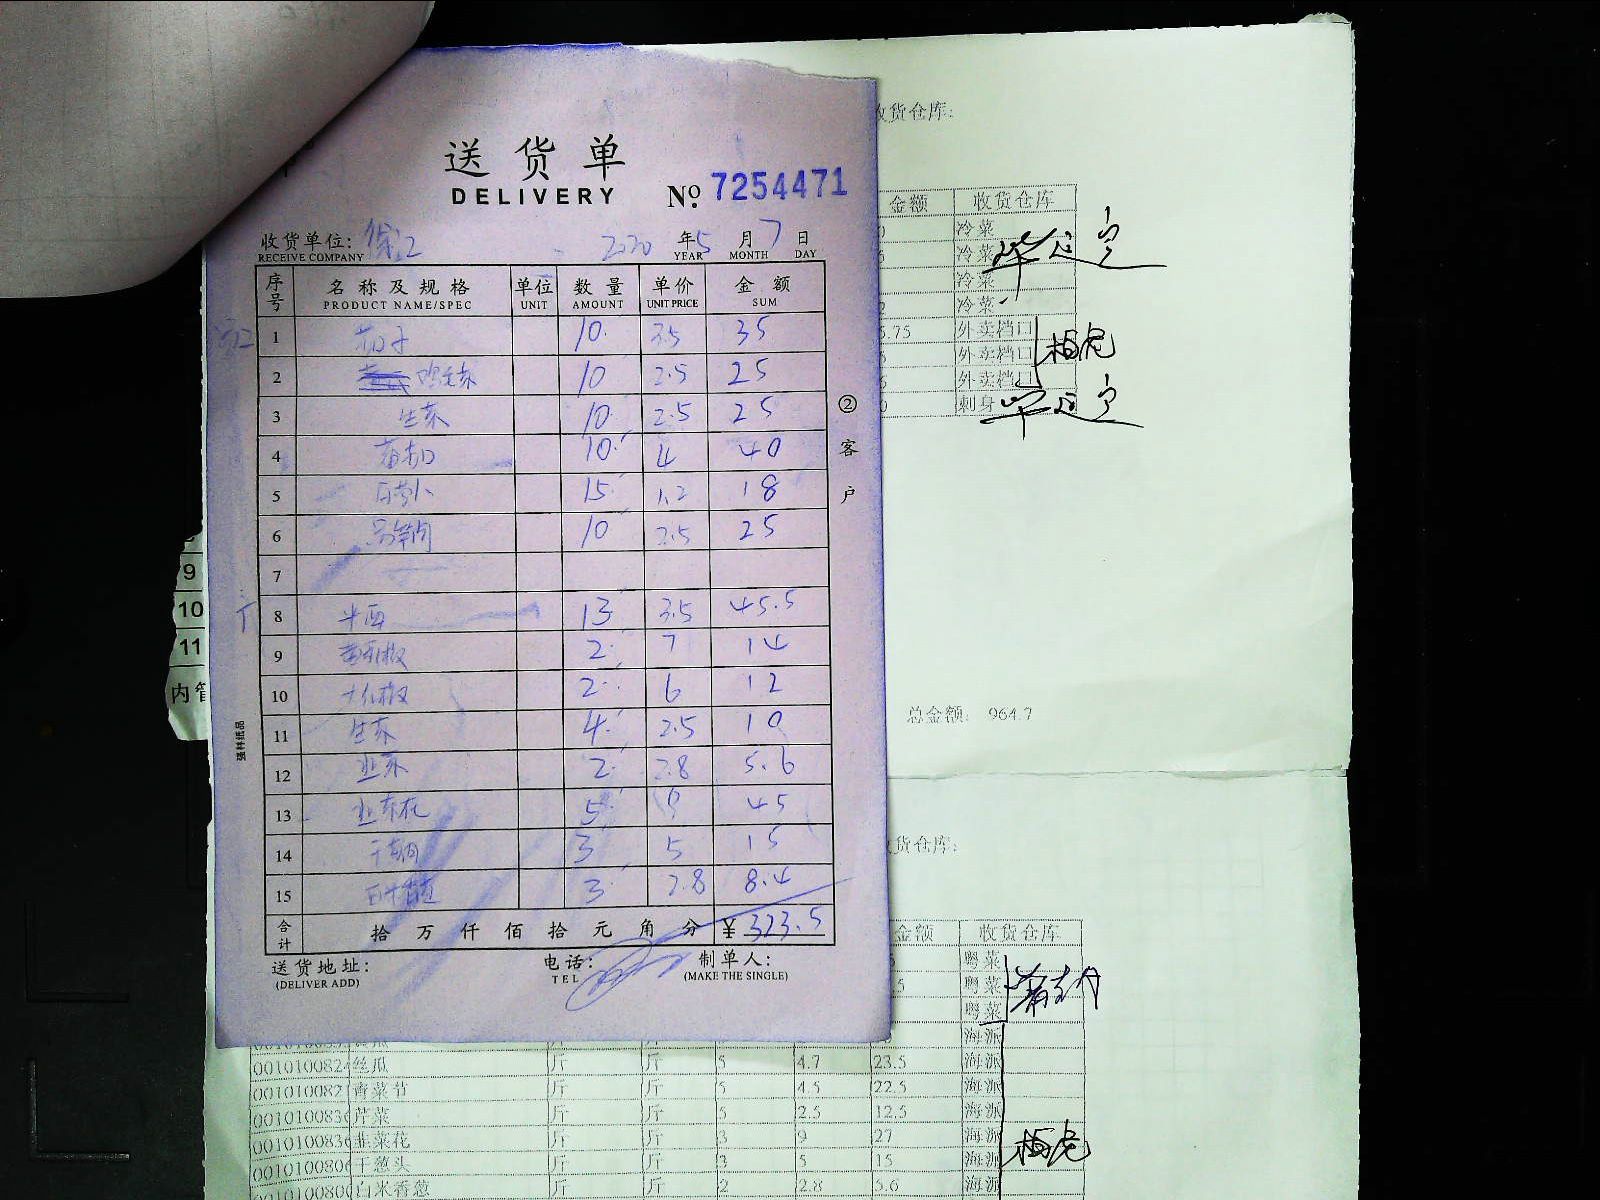 收货仓库:
送货单
DELIVERY № 7254471
收货单位: 2020 年 5 月 7 日
RECEIVE COMPANY YEAR MONTH DAY
序号 名称及规格 单位 数量 单价 金额
PRODUCT NAME/SPEC UNIT AMOUNT UNIT PRICE SUM
1 茄子 10 3.5 35
2 鸡毛菜 10 2.5 25
3 生菜 10 2.5 25
4 10 4 40
5 白萝卜 15 1.2 18
6 10 2.5 25
7
8 米西 13 3.5 45.5
9 2 7 14
10 2 6 12
11 生菜 4 2.5 10
12 韭菜 2 2.8 5.6
13 韭菜花 5 9 45
14 干葱 3 5 15
15 白米香葱 3 2.8 8.4
合计 拾 万 仟 佰 拾 元 角 分 ¥ 323.5
送货地址: 电话: 制单人:
(DELIVER ADD) TEL (MAKE THE SINGLE)
② 客户
强林纸品
9
10
11
内管
金额 收货仓库
冷菜
冷菜
冷菜
冷菜
5.75 外卖档口
外卖档口
外卖档口
刺身
总金额: 964.7
收货仓库:
金额 收货仓库
粤菜
粤菜
粤菜
海派
0010100824 丝瓜 斤 斤 5 4.7 23.5 海派
001010082 香菜节 斤 斤 5 4.5 22.5 海派
001010083 芹菜 斤 斤 5 2.5 12.5 海派
001010083 韭菜花 斤 斤 3 9 27 海派
001010080 干葱头 斤 斤 3 5 15 海派
001010080 白米香葱 斤 斤 2 2.8 5.6 海派